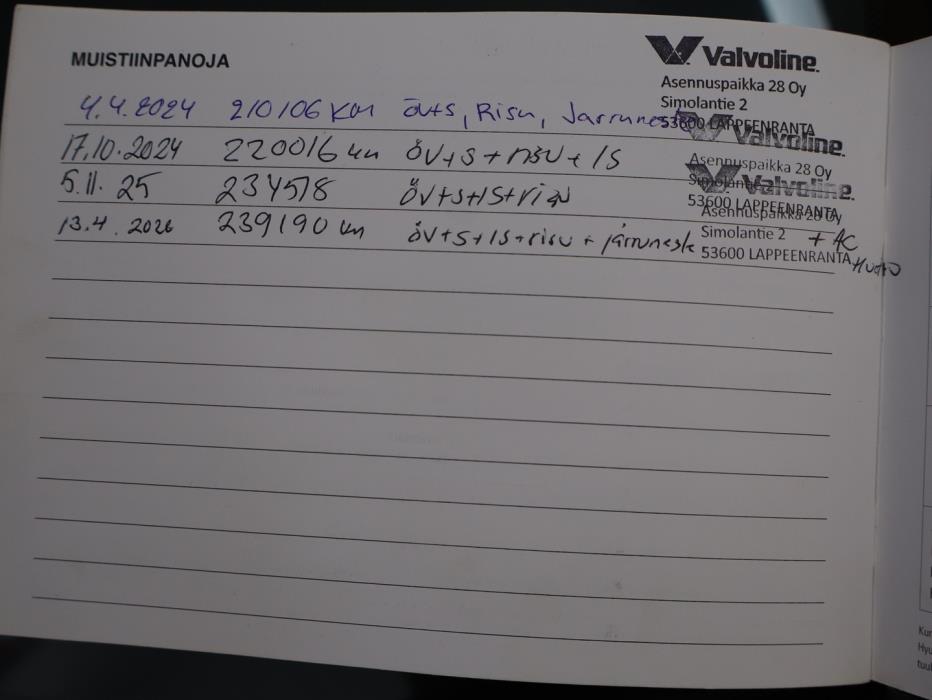 MUISTIINPANOJA
Valvoline
Asennuspaikka 28 Oy
Simolantie 2
53600 LAPPEENRANTA
4.4.2024 210106 KM öv+s, Risu, Jarruneste
Valvoline.
Asennuspaikka 28 Oy
17.10.2024 220016 km ÖV+S+risu+IS
Valvoline.
53600 LAPPEENRANTA
5.11.25 234578 ÖV+S+IS+risu
Asennuspaikka 28 Oy
Simolantie 2
53600 LAPPEENRANTA
13.4.2026 239190 km ÖV+S+IS+risu+jarruneste + AC
Huolto